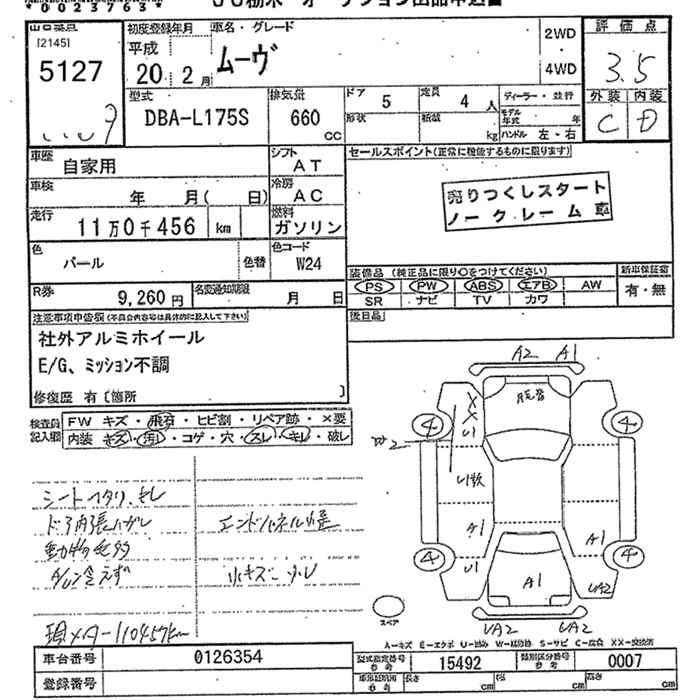 *00237633*
JU栃木 オークション出品申込書
山口菜品
[2145]
5127
初度登録年月
平成
20年 2月
車名・グレード
ムーヴ
2WD
・
4WD
評価点
3.5
外装 内装
C D
型式
DBA-L175S
排気量
660
CC
ドア
5
定員
4 人
形状
積載
kg
ディーラー・並行
モデル年式 年
ハンドル 左・右
車歴
自家用
シフト
AT
車検
年 月( 日)
冷房
AC
走行
11万0千456 km
燃料
ガソリン
色
パール
色替
色コード
W24
R券
9,260円
名変通知期限
月 日
セールスポイント(正常に機能するものに限ります)
売りつくしスタート
ノークレーム車
装備品 (純正品に限り○をつけてください)
新車保証書
PS PW ABS エアB AW
有・無
SR ナビ TV カワ
後日品
注意事項申告欄(不具合内容等は具体的に記入して下さい)
社外アルミホイール
E/G、ミッション不調
修復歴 有〔箇所 〕
検査員
記入欄
FW キズ・飛石・ヒビ割・リペア跡・×要
内装 キズ・汚レ・コゲ・穴・スレ・キレ・破レ
シートヘタリ、キレ
ドア内張ハガレ
エンドパネル凹歪
A/C冷えず
小キズ
現メーター110457km
A2 A1
XX
U1
W2
4 4
A1
A1
U1
4 4
A1
UA2
UA2 UA2
スペア
A-キズ E-エクボ U-凹み W-補修跡 S-サビ C-腐食 XX-交換済
車台番号
0126354
型式指定番号
参考
15492
類別区分番号
参考
0007
登録番号
車庫証明用
参考
長さ
cm
幅
cm
高さ
cm